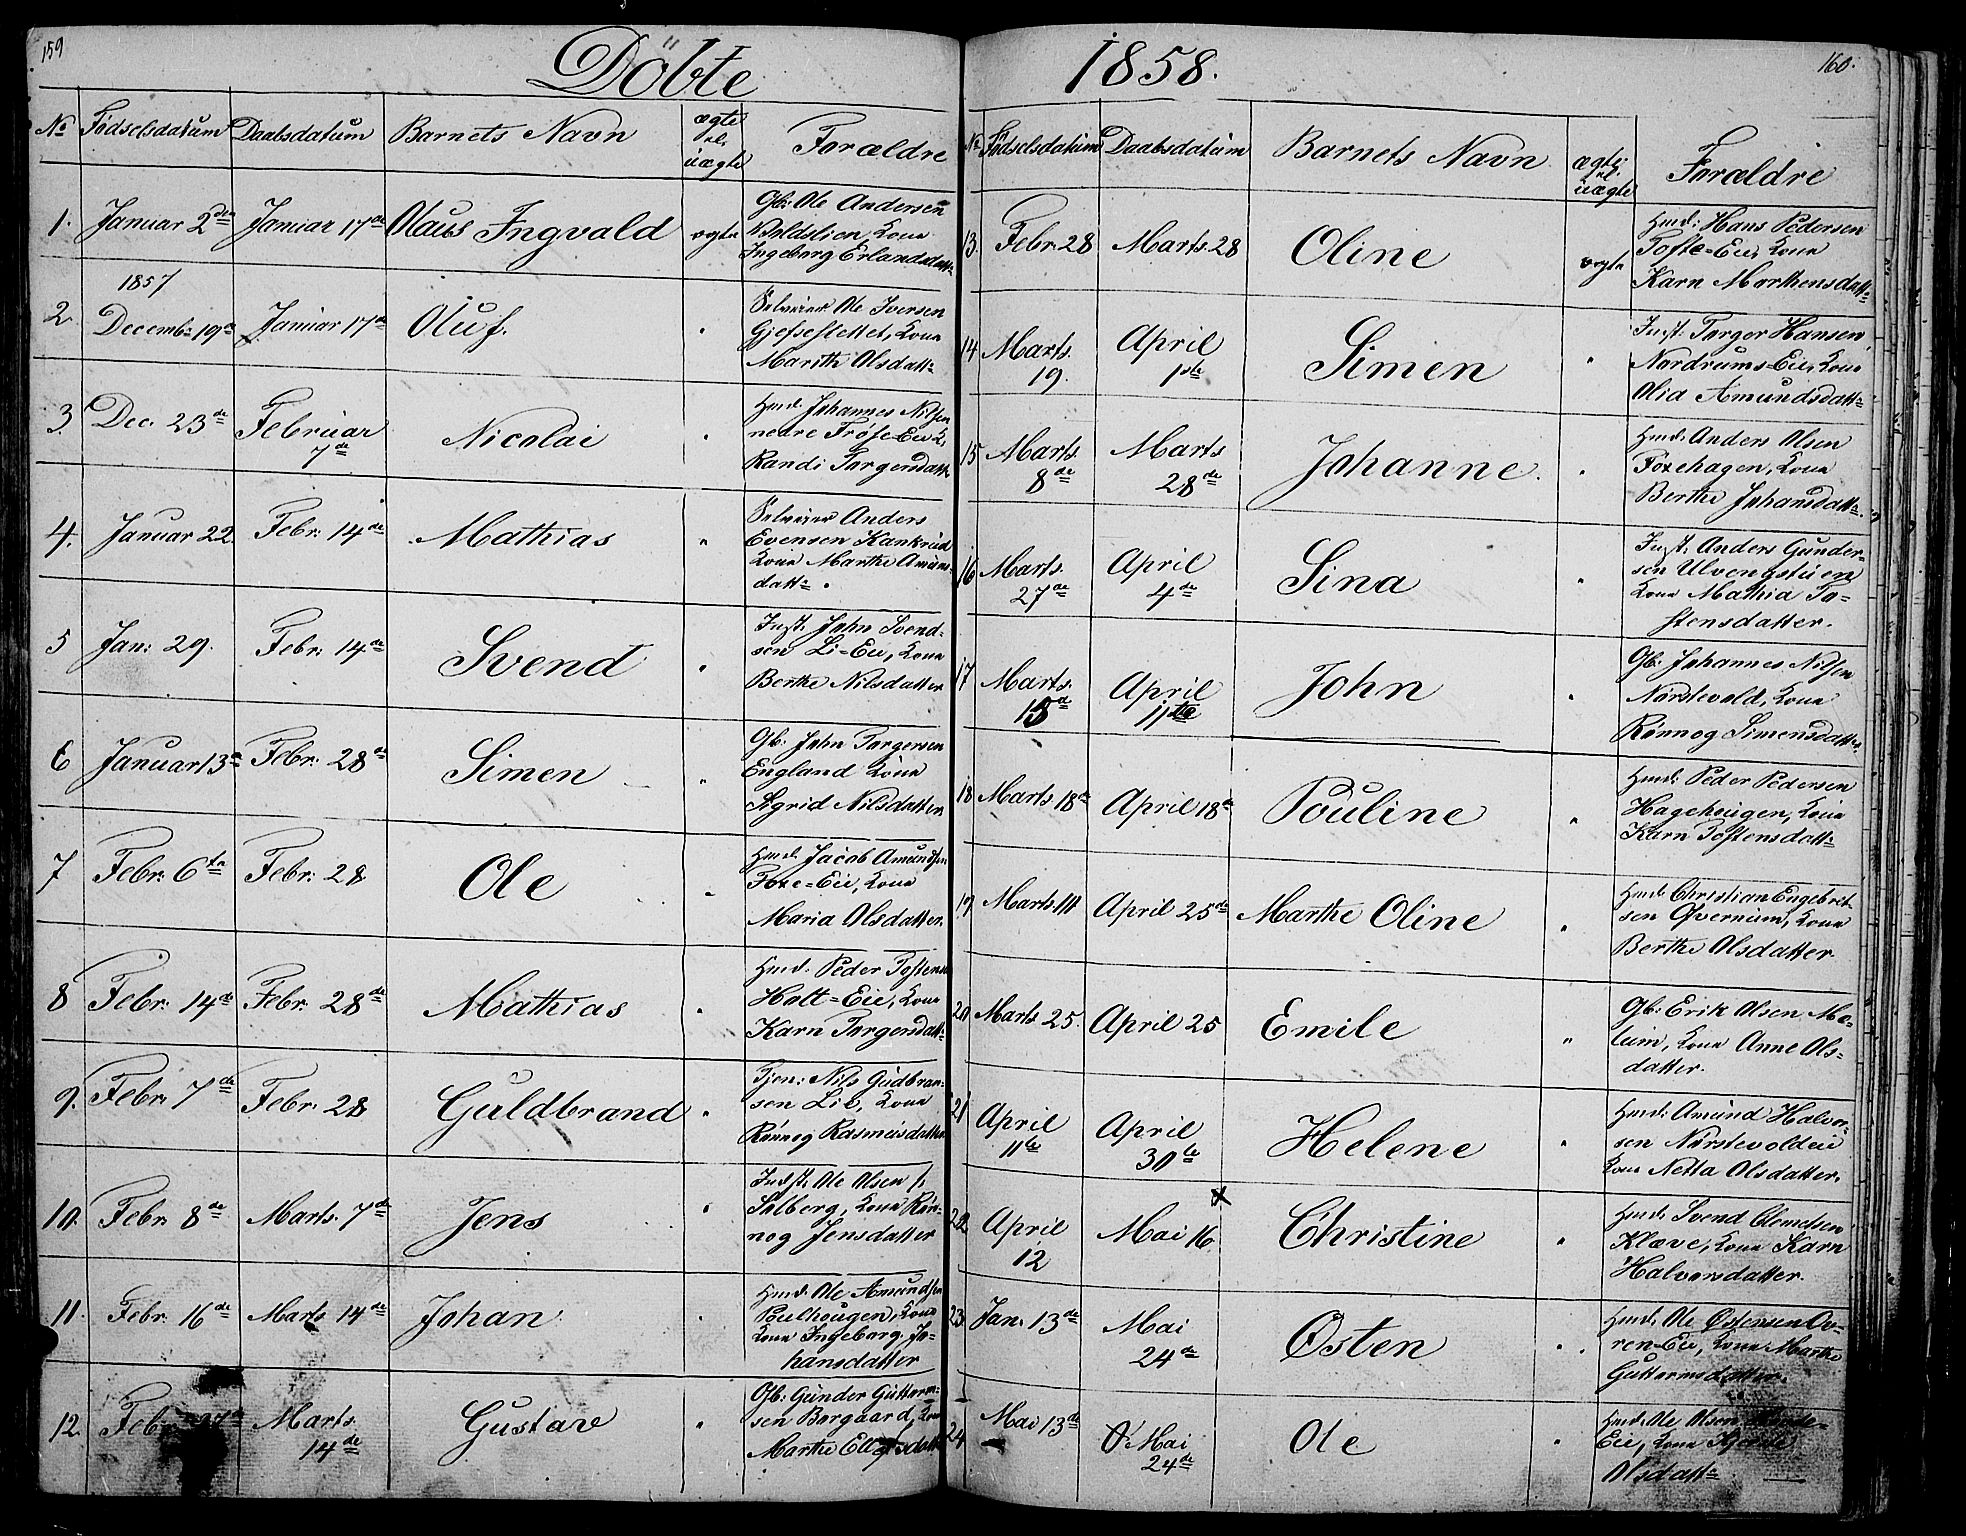 159
Döbte
No Födselsdatum Daabsdatum Barnets Navn ægte el. uægte Forældre
1. Januar 2den Januar 17de Olaus Ingvald ægte Gb: Ole Andersen
Kona
Ingeborg Erlandsdattr
1857
2. Decembr 19de Januar 17de Oluf. " Selveier Ole Iversen
Gjefsestettet, Kona
Marithe Olsdattr
3. Dec. 23de Februar 7de Nicolai " Hmd: Johannes Nilsen
nedre Fröse-Eie K,
Randi Torgersdattr
4. Januar 22. Febr: 14de Mathias " Selveier Anders
Evensen Kankrud
Kona Marthe Amuns-
dattr
5 Jan: 29. Febr: 14de Svend " Inst: John Svend-
sen Li-Eie, Kona
Berthe Nilsdatter
6 Januar 13de Febr: 28de Simen " Gb: John Torgersen
England Kona
Sigrid Nilsdatter
7 Febr: 6te Febr: 28 Ole " Hmd: Jacob Amundsen
Foxe-Eie, Kona
Maria Olsdatter.
8 Febr: 14de Febr: 28de Mathias " Hmd: Peder Tostens
Holt-Eie, Kona
Karn Torgersdattr
9. Febr: 7de Febr. 28 Guldbrand " Tjen: Nils Gudbran-
sen Lie, Kona
Rönnog Rasmusdatter
10. Febr: 8de Marts. 7de Jens " Indst: Ole Olsen
Solberg, Kona Rön-
nog Jensdatter
11. Febr: 16de Marts 14de Johan " Hmd: Ole Amundsen
Poulhougen, Kona
Kona Ingeborg Jo-
hansdatter
12. Febr 27de Marts. 14de Gustav " Gb: Gunder Guttorm-
sen Borgaard, Kona
Marthe
1858.
160.
No Födselsdatum Daabsdatum Barnets Navn ægte el. uægte Forældre
13. Febr. 28 Marts. 28 Oline ægte Hmd: Hans Pedersen
Tofte-Eie, Kona
Karn Morthensdattr
14 Marts. 19. April 1ste Simen " Inst: Torger Hansen
Nordrums-Eie, Kona
Olia Amundsdattr
15 Marts. 8de Marts 28de Johanne. " Hmd: Anders Olsen
Foxehagen, Kona
Berthe Johansdattr.
16 Marts. 27de April 4de Sina " Inst: Anders Gunder-
sen Ulvengstuen
Kona Mathia To-
stensdatter.
17 Marts. 18de April 11te John " Gb: Johannes Nilsen
Norstevold, Kona
Rönnog Simensdatter.
18 Marts 18de April 18de Pouline " Hmd: Peder Pedersen
Hagehougen, Kona
Karn Tostensdattr
19 Marts. April 25de Marthe Oline " Hmd: Christian Engebret-
sen Qvernum, Kona
Berthe Olsdatter.
20. Marts 25. April 25 Emile " Gb: Erik Olsen Mæ-
lum, Kona Anne Ols-
datter.
21 April 11te April 30te Helene " Hmd: Amund Halvor-
sen Norstevoldeie
Kona Netta Olsdatter.
22. April 12 Mai 16 x Christine " Hmd: Svend Clemetsen
Klæve, Kona Karn
Halvorsdatter.
23. Jan. 13de Mai 24de Østen " Hmd: Ole Østensen Ov-
ren-Eie, Kona Marthe
Guttormsdatter.
24 Mai 13de Mai 24de Ole " Hmd: Ole Olsen
Eie, Kona
Olsdattr